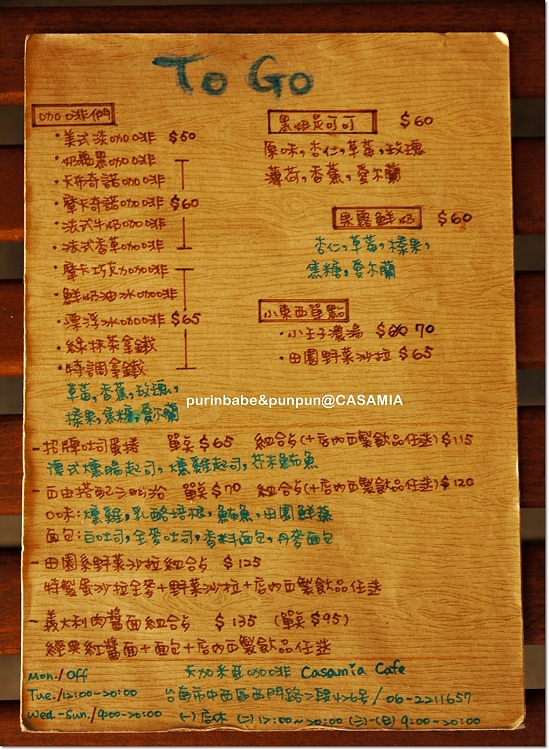 To Go
咖啡們
・美式淡咖啡 $50
・奶
・卡布奇諾咖啡
・摩卡奇諾咖啡 $60
・法式牛奶咖啡
・法式香草咖啡
・摩卡巧克咖啡
・鮮奶油冰咖啡
・漂浮冰咖啡 $65
・綠抹茶拿鐵
・特調拿鐵
草莓,香蕉,玫瑰,
榛果,焦糖,愛爾蘭
可可 $60
原味,杏仁,草莓,玫瑰
薄荷,香蕉,愛爾蘭
果露鮮奶 $60
杏仁,草莓,榛果,
焦糖,愛爾蘭
小東西單點
・小王子濃湯 $60 70
・田園野菜沙拉 $65
purinbabe&punpun@CASAMIA
-招牌吐司蛋捲 單點$65 組合占(+店內西製飲品任選)$115
燻雞起司,芥末鮪魚
-自由搭配三明治 單點$70 組合占(+店內西製飲品任選)$120
口味:燻雞,乳酪培根,鮪魚,田園鮮蔬
面包:白吐司,全麥吐司,香料面包,丹麥面包
-田園系野菜沙拉組合占 $125
特製蛋沙拉全麥+野菜沙拉+店內西製飲品任選
-義大利肉醬面組合占 $135 (單點$95)
經典紅醬面+面包+店內西製飲品任選
Mon./Off 卡加米亞咖啡 Casamia Cafe
Tue./12:00~20:00 台南市中西區西門路二段426号/06-2211657
Wed.-Sun./9:00~20:00 (一)店休 (二)12:00~20:00 (三)-(日)9:00~20:00